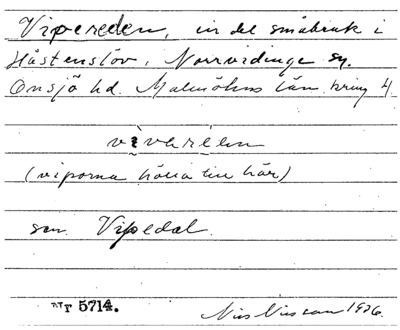 Vipereden, en del småbruk i
Håstenslöv, Norrvidinge sn.
Onsjö hd. Malmöhus län. kring 4
viveréen
(viporna hålla till här)
sen Vipedal.
Nr 5714.
Nils Nilsson 1926.